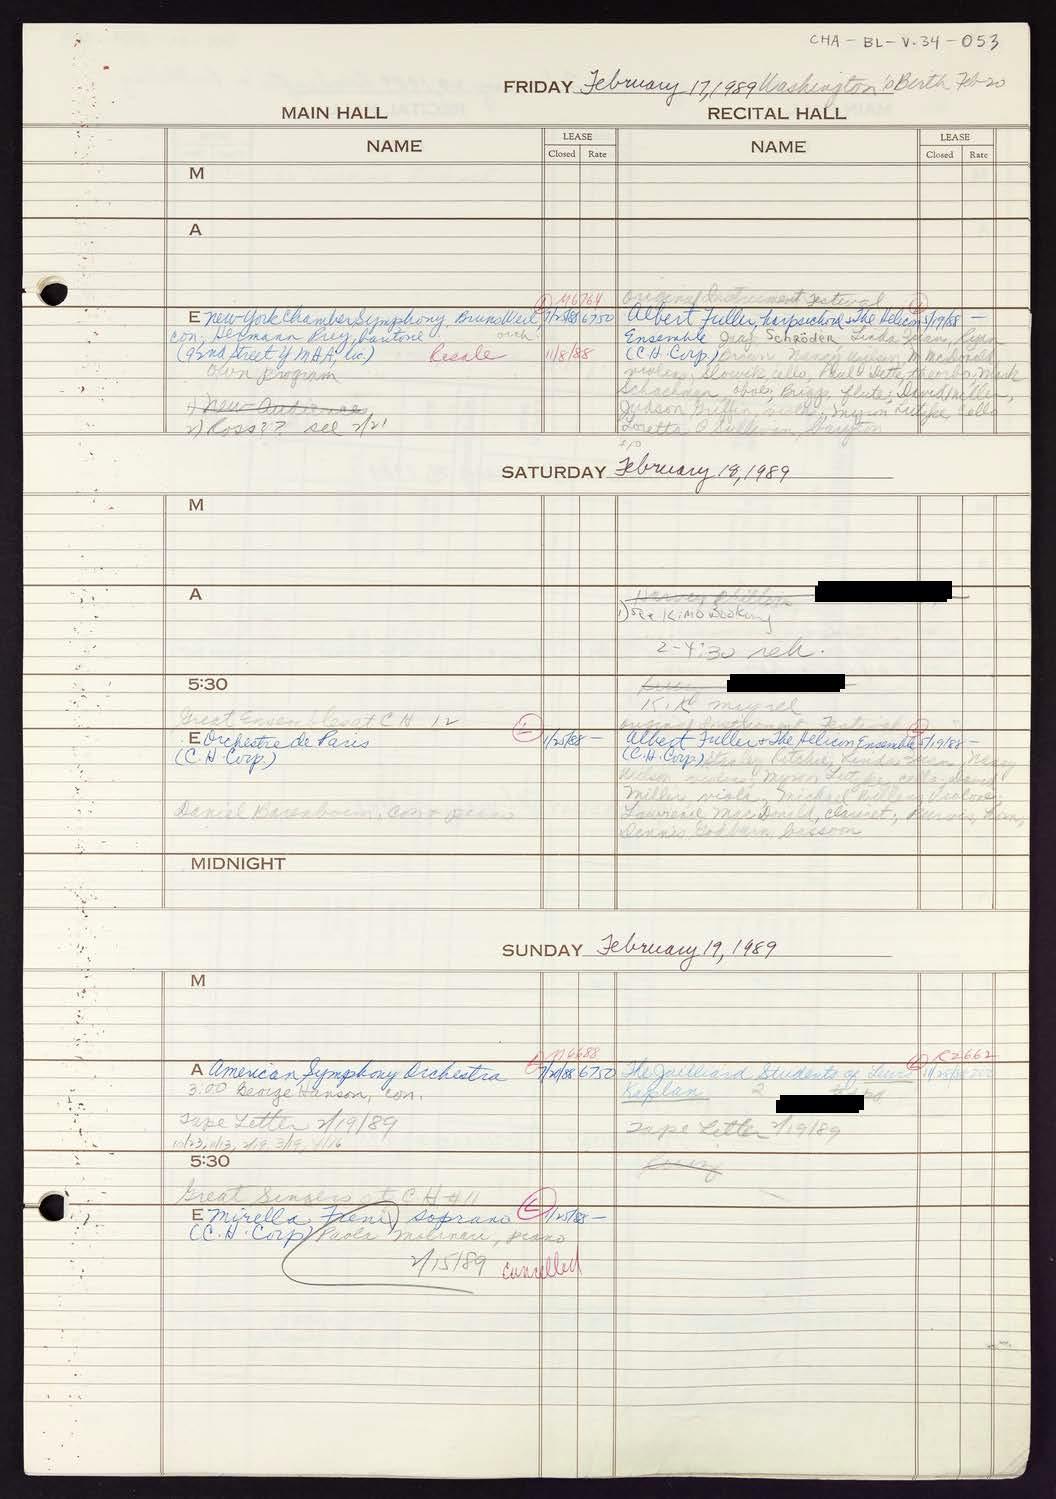 CHA-BL-V.34-053
FRIDAY February 17, 1989 Washington's Birth Feb 20
MAIN HALL
RECITAL HALL
NAME
LEASE
Closed Rate
NAME
LEASE
Closed Rate
M
A
M6764
E New York Chamber Symphony, Bruno Weil, 6750
con, Hermann Prey, baritone orch.
(92nd Street Y M.H.A., Inc.) Resale 11/8/88
Own program
1) New Audiences
2) Ross?? see 2/21
Original Instrument Festival
Albert Fuller, harpsichord + The Helicon 5/19/88 —
Ensemble Jaap Schröder Linda Quan, Ryan
(C.H. Corp.) Brown Nancy Wilson, M McDonald
violins, Slowik, cello, Paul O'Dette, theorbo, Mark
Schachman oboe, Briggs, flute, David Miller,
Judson Griffin, viola, Myron Lutzke cello
Loretta O'Sullivan,
SATURDAY February 18, 1989
M
A
1) See Kimo Booking
2-4:30 reh.
5:30
Great Ensembles at CH 12
E Orchestre de Paris 1/25/88 —
(C.H. Corp.)
Daniel Barenboim, con + piano
Original Instrument Festival
Albert Fuller + The Helicon Ensemble 5/19/88 —
(C.H. Corp.) Stanley Ritchie, Linda Quan, Nancy
Wilson violins, Myron Lutzke, cello David
Miller, viola, Michael Willens Violone,
Lawrence MacDonald, clarinet, Purvis, horn,
Dennis Godburn, bassoon
MIDNIGHT
SUNDAY February 19, 1989
M
M6688
A American Symphony Orchestra 7/20/88 6750
3:00 George Hanson, con.
Tape Letter 2/19/89
10/23, 11/13, 2/19, 3/19, 4/16
R2662
The Juilliard Students of Lewis
Kaplan 2
Tape Letter 2/19/89
5:30
Great Singers at C H #11
E Mirella Freni, soprano 1/25/88 —
(C.H. Corp) Paola Molinari, piano
2/15/89 cancelled